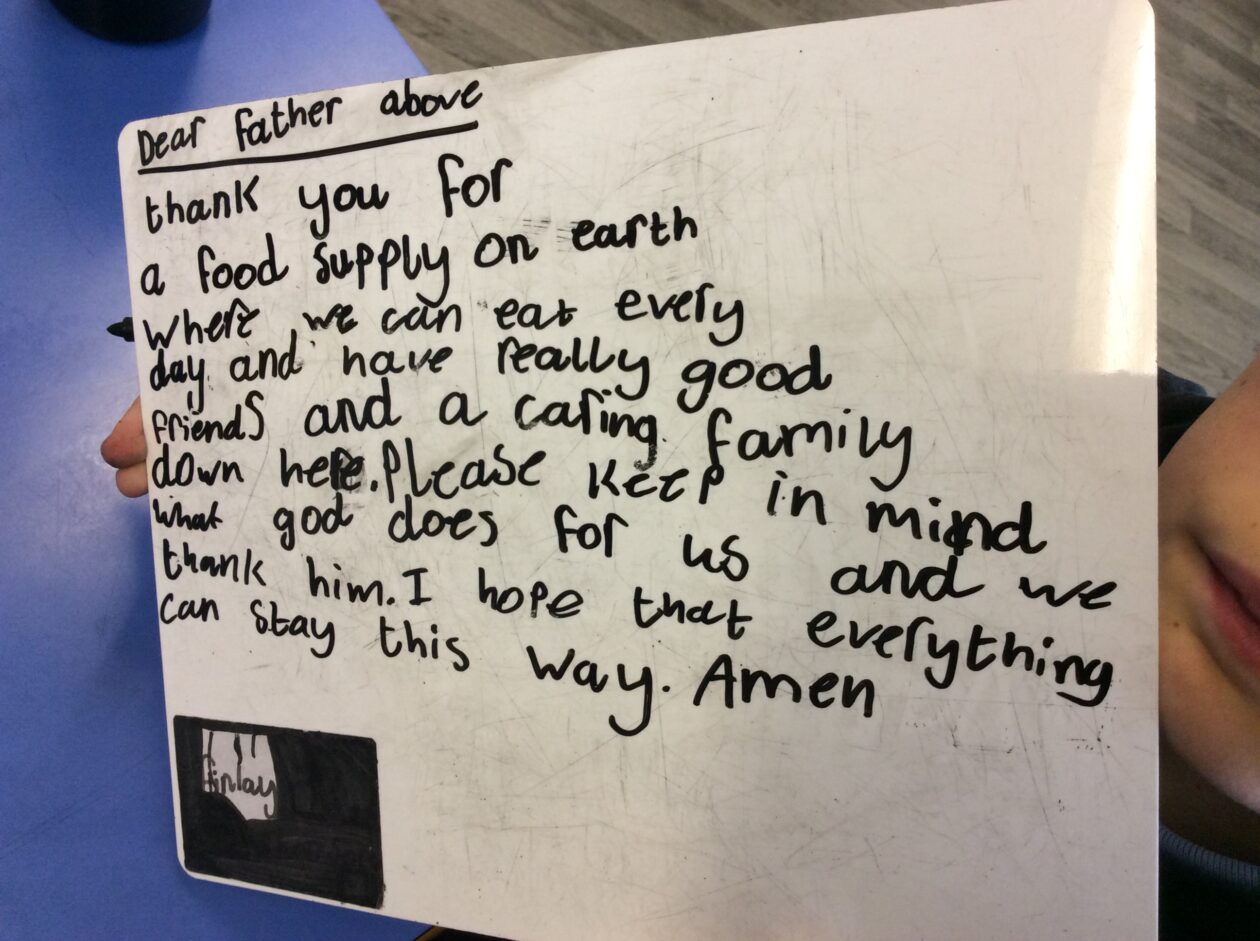 Dear Father above
thank you for
a food supply on earth
where we can eat every
day and have really good
friends and a caring family
down here. Please keep in mind
what god does for us and we
thank him. I hope that everything
can stay this way. Amen
finlay